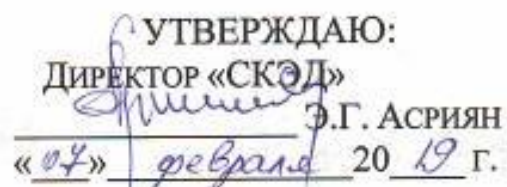 УТВЕРЖДАЮ:
ДИРЕКТОР «СКЭД»
Э.Г. АСРИЯН
«07» февраля 20 19 г.